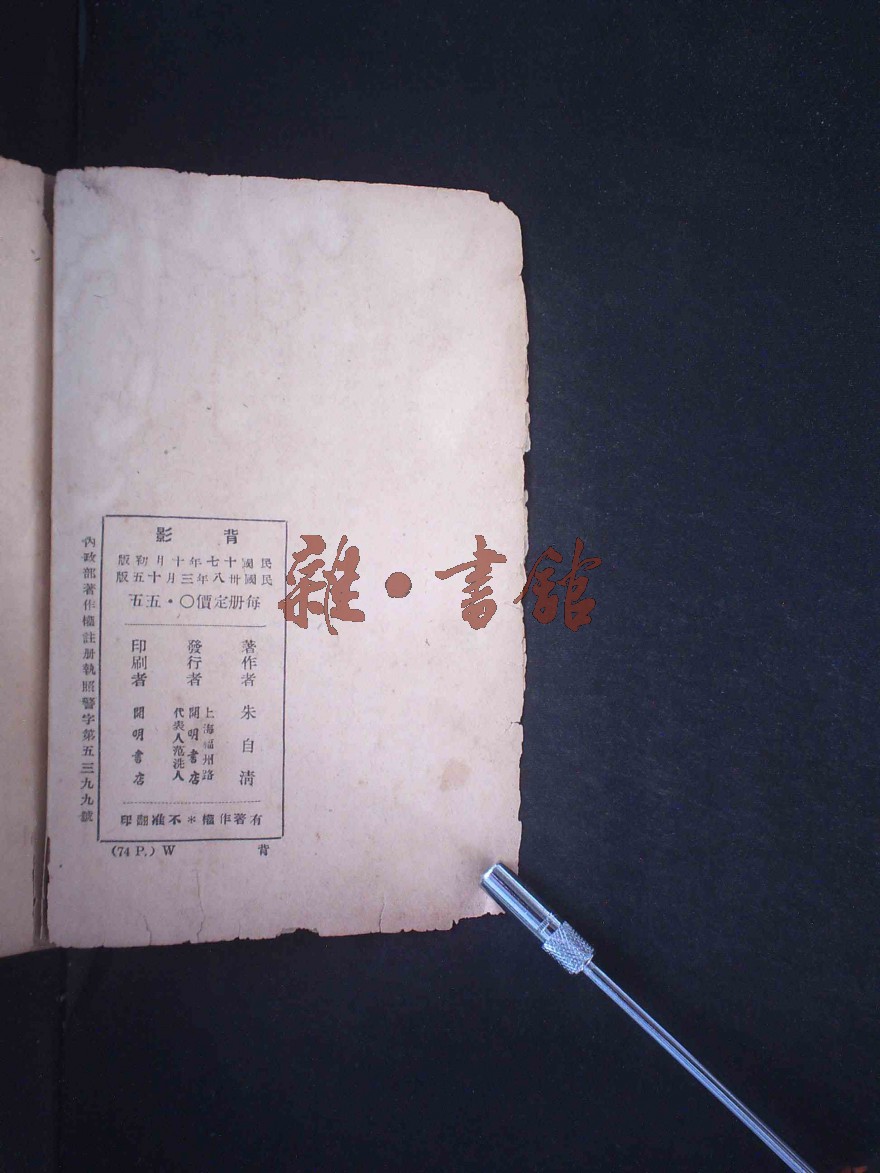 背影
民國十七年十月初版
民國卅八年三月十五版
每册定價〇·五五
著作者 朱自清
發行者 上海福州路
開明書店
代表人范洗人
印刷者 開明書店
有著作權*不准翻印
內政部著作權註册執照警字第五三九九號
(74 P.) W 背
雜·書館